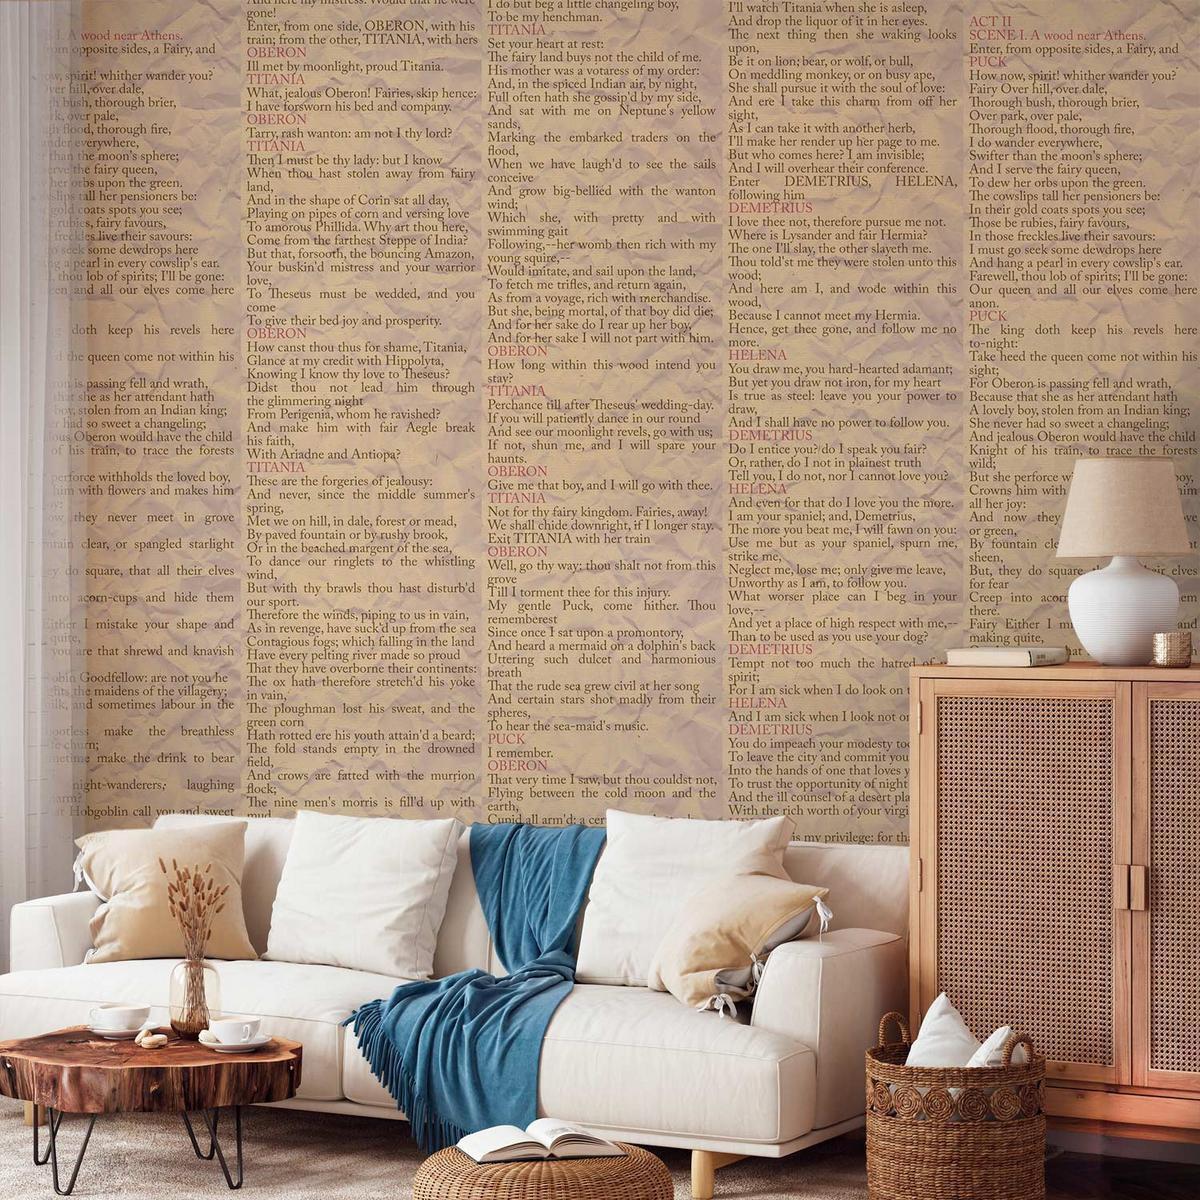 I. A wood near Athens.
opposite sides, a Fairy, and
spirit! whither wander you?
hill, over dale,
bush, thorough brier,
over pale,
flood, thorough fire,
everywhere,
than the moon's sphere;
the fairy queen,
her orbs upon the green.
tall her pensioners be:
gold coats spots you see;
rubies, fairy favours,
freckles live their savours:
seek some dewdrops here
a pearl in every cowslip's ear.
thou lob of spirits; I'll be gone:
and all our elves come here
doth keep his revels here
the queen come not within his
is passing fell and wrath,
she as her attendant hath
boy, stolen from an Indian king;
had so sweet a changeling;
Oberon would have the child
of his train, to trace the forests
perforce withholds the loved boy,
him with flowers and makes him
they never meet in grove
clear, or spangled starlight
do square, that all their elves
into acorn-cups and hide them
Either I mistake your shape and
quite,
you are that shrewd and knavish
Goodfellow: are not you he
the maidens of the villagery;
and sometimes labour in the
bootless make the breathless
churn;
make the drink to bear
night-wanderers, laughing
Hobgoblin call you and sweet
And here my mistress. Would that he were
gone!
Enter, from one side, OBERON, with his
train; from the other, TITANIA, with hers
OBERON
Ill met by moonlight, proud Titania.
TITANIA
What, jealous Oberon! Fairies, skip hence:
I have forsworn his bed and company.
OBERON
Tarry, rash wanton: am not I thy lord?
TITANIA
Then I must be thy lady: but I know
When thou hast stolen away from fairy
land,
And in the shape of Corin sat all day,
Playing on pipes of corn and versing love
To amorous Phillida. Why art thou here,
Come from the farthest Steppe of India?
But that, forsooth, the bouncing Amazon,
Your buskin'd mistress and your warrior
love,
To Theseus must be wedded, and you
come
To give their bed joy and prosperity.
OBERON
How canst thou thus for shame, Titania,
Glance at my credit with Hippolyta,
Knowing I know thy love to Theseus?
Didst thou not lead him through
the glimmering night
From Perigenia, whom he ravished?
And make him with fair Aegle break
his faith,
With Ariadne and Antiopa?
TITANIA
These are the forgeries of jealousy:
And never, since the middle summer's
spring,
Met we on hill, in dale, forest or mead,
By paved fountain or by rushy brook,
Or in the beached margent of the sea,
To dance our ringlets to the whistling
wind,
But with thy brawls thou hast disturb'd
our sport.
Therefore the winds, piping to us in vain,
As in revenge, have suck'd up from the sea
Contagious fogs; which falling in the land
Have every pelting river made so proud
That they have overborne their continents:
The ox hath therefore stretch'd his yoke
in vain,
The ploughman lost his sweat, and the
green corn
Hath rotted ere his youth attain'd a beard;
The fold stands empty in the drowned
field,
And crows are fatted with the murrion
flock;
The nine men's morris is fill'd up with
mud,
I do but beg a little changeling boy,
To be my henchman.
TITANIA
Set your heart at rest:
The fairy land buys not the child of me.
His mother was a votaress of my order:
And, in the spiced Indian air, by night,
Full often hath she gossip'd by my side,
And sat with me on Neptune's yellow
sands,
Marking the embarked traders on the
flood,
When we have laugh'd to see the sails
conceive
And grow big-bellied with the wanton
wind;
Which she, with pretty and with
swimming gait
Following,--her womb then rich with my
young squire,--
Would imitate, and sail upon the land,
To fetch me trifles, and return again,
As from a voyage, rich with merchandise.
But she, being mortal, of that boy did die;
And for her sake do I rear up her boy,
And for her sake I will not part with him.
OBERON
How long within this wood intend you
stay?
TITANIA
Perchance till after Theseus' wedding-day.
If you will patiently dance in our round
And see our moonlight revels, go with us;
If not, shun me, and I will spare your
haunts.
OBERON
Give me that boy, and I will go with thee.
TITANIA
Not for thy fairy kingdom. Fairies, away!
We shall chide downright, if I longer stay.
Exit TITANIA with her train
OBERON
Well, go thy way: thou shalt not from this
grove
Till I torment thee for this injury.
My gentle Puck, come hither. Thou
rememberest
Since once I sat upon a promontory,
And heard a mermaid on a dolphin's back
Uttering such dulcet and harmonious
breath
That the rude sea grew civil at her song
And certain stars shot madly from their
spheres,
To hear the sea-maid's music.
PUCK
I remember.
OBERON
That very time I saw, but thou couldst not,
Flying between the cold moon and the
earth,
Cupid all arm'd: a
I'll watch Titania when she is asleep,
And drop the liquor of it in her eyes.
The next thing then she waking looks
upon,
Be it on lion, bear, or wolf, or bull,
On meddling monkey, or on busy ape,
She shall pursue it with the soul of love:
And ere I take this charm from off her
sight,
As I can take it with another herb,
I'll make her render up her page to me.
But who comes here? I am invisible;
And I will overhear their conference.
Enter DEMETRIUS, HELENA,
following him
DEMETRIUS
I love thee not, therefore pursue me not.
Where is Lysander and fair Hermia?
The one I'll slay, the other slayeth me.
Thou told'st me they were stolen unto this
wood;
And here am I, and wode within this
wood,
Because I cannot meet my Hermia.
Hence, get thee gone, and follow me no
more.
HELENA
You draw me, you hard-hearted adamant;
But yet you draw not iron, for my heart
Is true as steel: leave you your power to
draw,
And I shall have no power to follow you.
DEMETRIUS
Do I entice you? do I speak you fair?
Or, rather, do I not in plainest truth
Tell you, I do not, nor I cannot love you?
HELENA
And even for that do I love you the more.
I am your spaniel; and, Demetrius,
The more you beat me, I will fawn on you:
Use me but as your spaniel, spurn me,
strike me,
Neglect me, lose me; only give me leave,
Unworthy as I am, to follow you.
What worser place can I beg in your
love,--
And yet a place of high respect with me,--
Than to be used as you use your dog?
DEMETRIUS
Tempt not too much the hatred of
spirit;
For I am sick when I do look on
HELENA
And I am sick when I look not
DEMETRIUS
You do impeach your modesty
To leave the city and commit
Into the hands of one that loves
To trust the opportunity of night
And the ill counsel of a desert
With the rich worth of your
is my privilege: for
ACT II
SCENE I. A wood near Athens.
Enter, from opposite sides, a Fairy, and
PUCK
How now, spirit! whither wander you?
Fairy Over hill, over dale,
Thorough bush, thorough brier,
Over park, over pale,
Thorough flood, thorough fire,
I do wander everywhere,
Swifter than the moon's sphere;
And I serve the fairy queen,
To dew her orbs upon the green.
The cowslips tall her pensioners be:
In their gold coats spots you see;
Those be rubies, fairy favours,
In those freckles live their savours:
I must go seek some dewdrops here
And hang a pearl in every cowslip's ear.
Farewell, thou lob of spirits; I'll be gone:
Our queen and all our elves come here
anon.
PUCK
The king doth keep his revels here
to-night:
Take heed the queen come not within his
sight;
For Oberon is passing fell and wrath,
Because that she as her attendant hath
A lovely boy, stolen from an Indian king;
She never had so sweet a changeling;
And jealous Oberon would have the child
Knight of his train, to trace the forests
wild;
But she perforce boy,
Crowns him with
all her joy:
And now they
or green,
By fountain
sheen,
But, they do square elves
for fear
Creep into
there.
Fairy Either I
making quite,